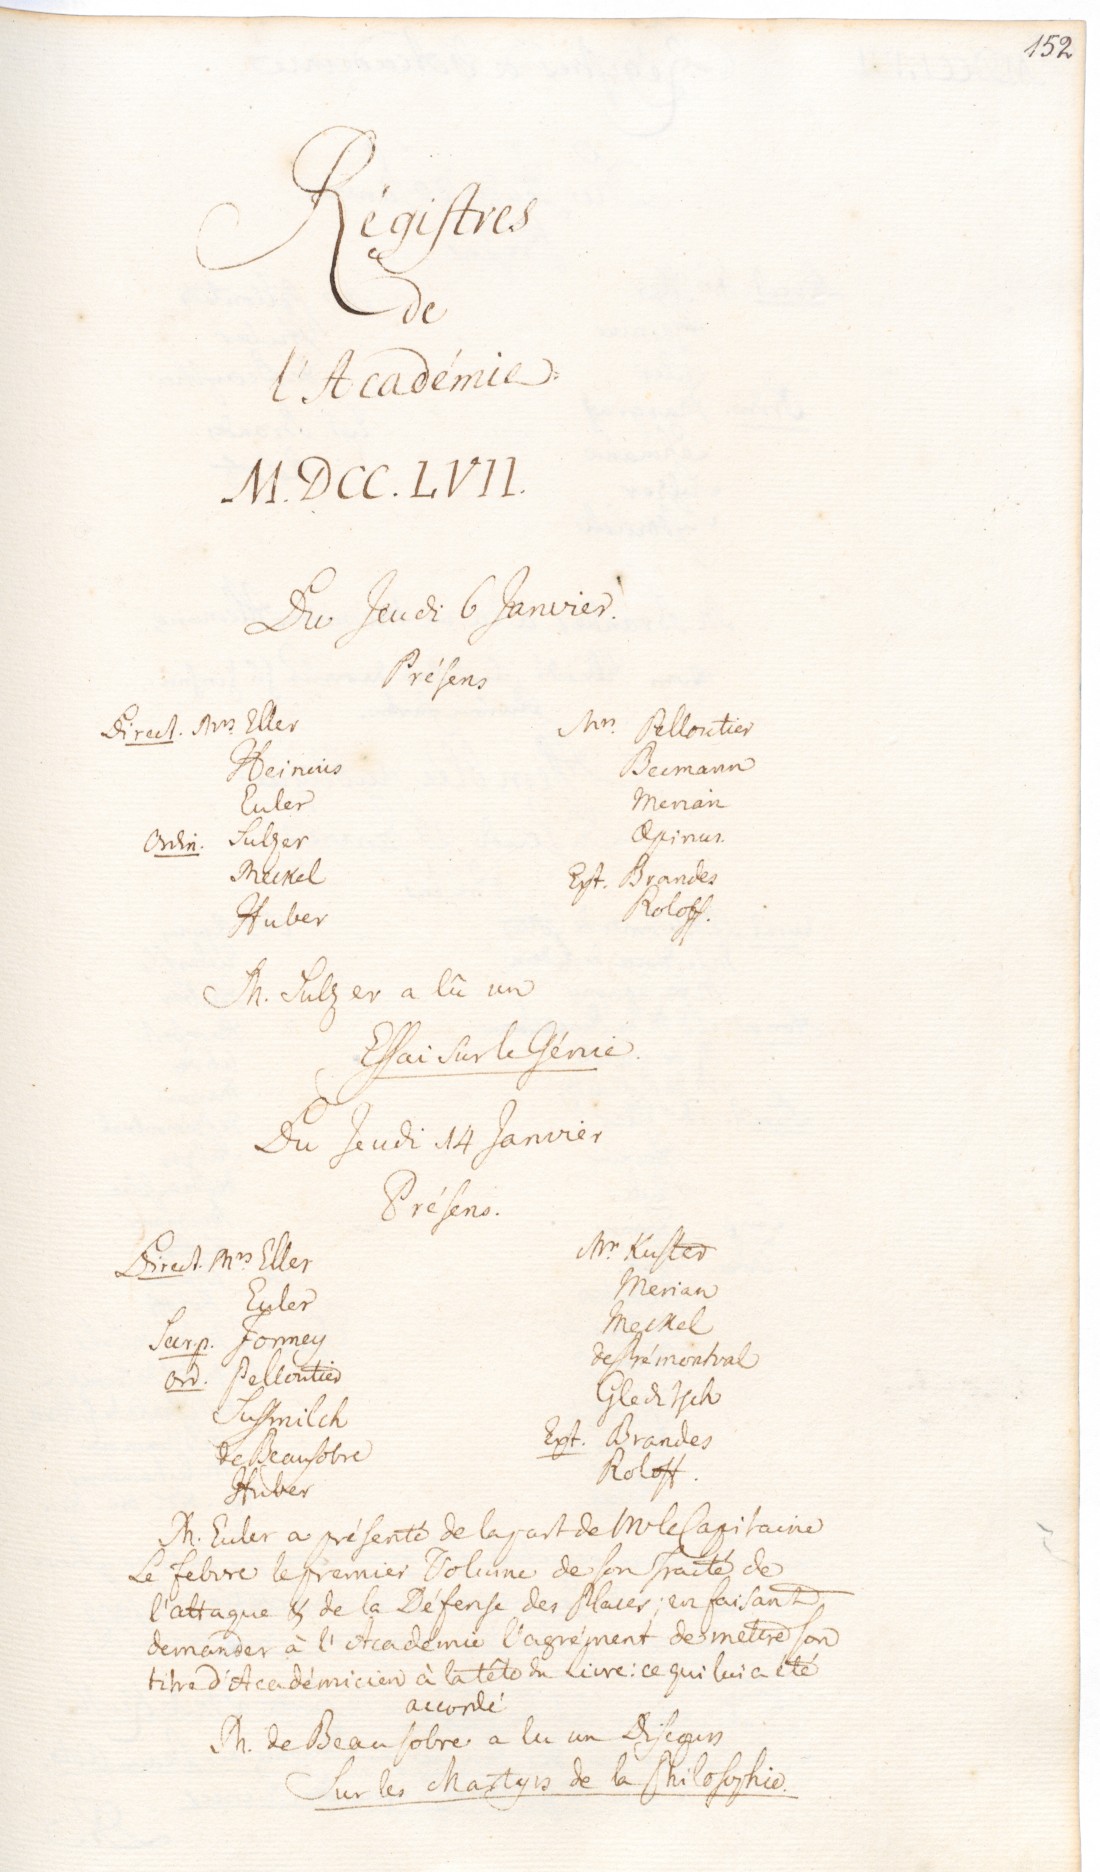 152
Régistres
de
l'Académie
M.DCC.LVII.
Du Jeudi 6 Janvier.
Présens
Direct. Mrs Eller
Heinius
Euler
Ordin. Sulzer
Meckel
Huber
Mrs. Pelloutier
Becmann
Merian
Œpinus.
Ext. Brandes
Roloff.
M. Sulzer a lû un
Essai sur le Génie.
Du Jeudi 14 Janvier
Présens.
Direct. Mrs Eller
Euler
Secr. p. Formey
Ord. Pelloutier
Sussmilch
de Beausobre
Huber
Mrs Kuster
Merian
Meckel
de Prémontval
Gleditsch
Ext. Brandes
Roloff.
M. Euler a présenté de la part de Mr le Capitaine
Le Febvre le premier Volume de son Traité de
l'attaque & de la Défense des Places; en faisant
demander à l'Académie l'agrément de mettre son
titre d'Académicien à la tête du Livre: ce qui lui a été
accordé
M. de Beausobre a lu un Discours
Sur les Martyrs de la Philosophie.